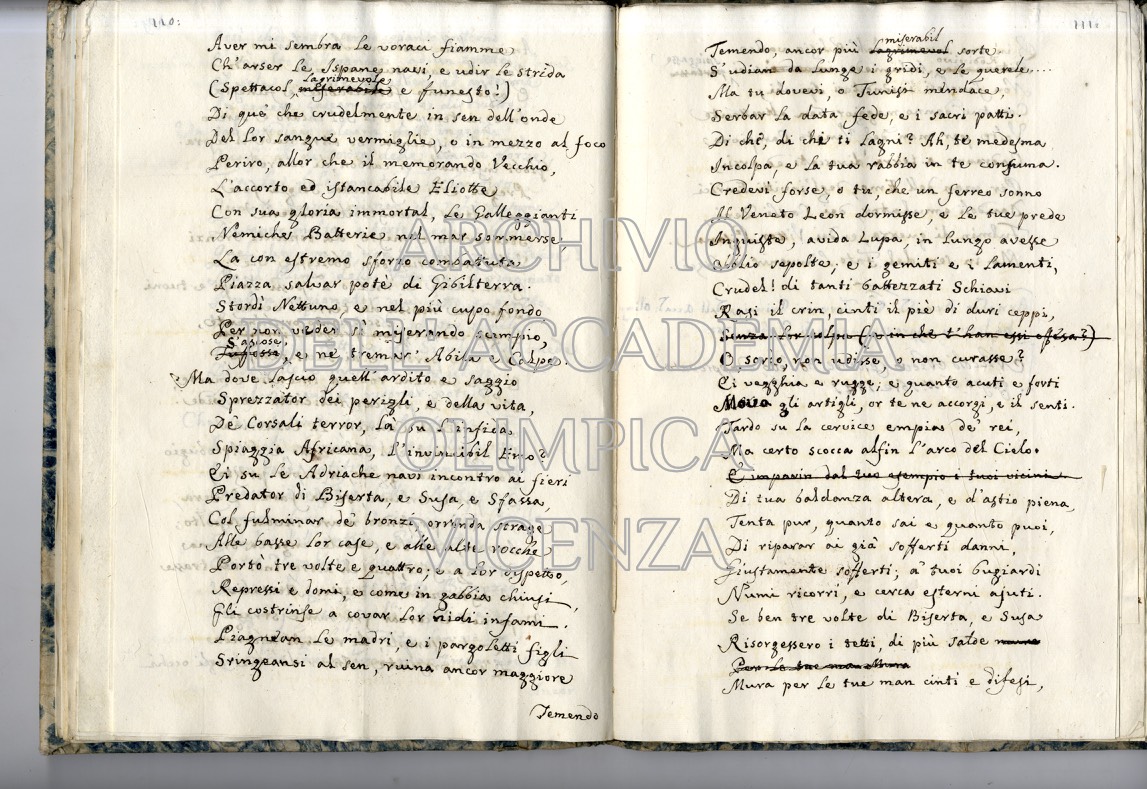 110:
Aver mi sembra le voraci fiamme
Ch'arser le Ispane navi, e udir le strida
lagrimevole
(Spettacol miserabile e funesto!)
Di que' che crudelmente in sen dell'onde
Del lor sangue vermiglie, o in mezzo al foco
Periro, allor che il memorando Vecchio,
L'accorto ed istancabile Eliotte
Con sua gloria immortal, le Galleggianti
Nemiche Batterie nel mar sommerse
La con estremo sforzo combattuta
Piazza salvar potè di Gibilterra.
Stordì Nettuno, e nel più cupo fondo
Per non veder sì miserando scempio,
S'ascose,
e ne tremar' Abila e Calpe.
Ma dove lascio quell'ardito e saggio
Sprezzator dei perigli, e della vita,
De' Corsali terror, là su l'infida
Spiaggia Africana, l'invincibil Emo?
Ei su le Adriache navi incontro ai fieri
Predator di Biserta, e Susa, e Sfassa,
Col fulminar de' bronzi orrenda strage
Alle basse lor case, e alle alte rocche
Portò tre volte e quattro; e a lor dispetto,
Repressi e domi, e come in gabbia chiusi,
Gli costrinse a covar lor nidi infami.
Piagnean le madri, e i pargoletti figli
Stringeansi al sen, ruina ancor maggiore
Temendo
111:
miserabil
Temendo, ancor più lagrimevol sorte.
S'udian da lunge i gridi, e le querele....
Ma tu dovevi, o Tunisi mendace,
Serbar la data fede, e i sacri patti.
Di chè, di chè ti lagni? Ah, te medesma
Incolpa, e la tua rabbia in te consuma.
Credevi forse, o tu, che un ferreo sonno
Il Veneto Leon dormisse, e le tue prede
Ingiuste, avida Lupa, in lungo avesse
Oblio sepolte, e i gemiti e i lamenti,
Crudel! di tanti battezzati Schiavi
Rasi il crin, cinti il piè di duri ceppi,
Senza lor colpa (e in che t'han essi offesa?)
O sordo, non udisse, o non curasse?
Ei vegghia e rugge; e quanto acuti e forti
Mova gli artigli, or te ne accorgi, e il senti.
Tardo su la cervice empia de' rei,
Ma certo scocca alfin l'arco del Cielo.
E imparin dal tuo esempio i tuoi vicini
Di tua baldanza altera, e d'astio piena,
Tenta pur, quanto sai e quanto puoi,
Di riparar ai già sofferti danni,
Giustamente sofferti; a' tuoi bugiardi
Numi ricorri, e cerca esterni ajuti.
Se ben tre volte di Biserta, e Susa
Risorgessero i tetti, di più salde mura
Per le tue man
Mura per le tue man cinti e difesi,
ARCHIVIO
DELL'ACCADEMIA
OLIMPICA
VICENZA